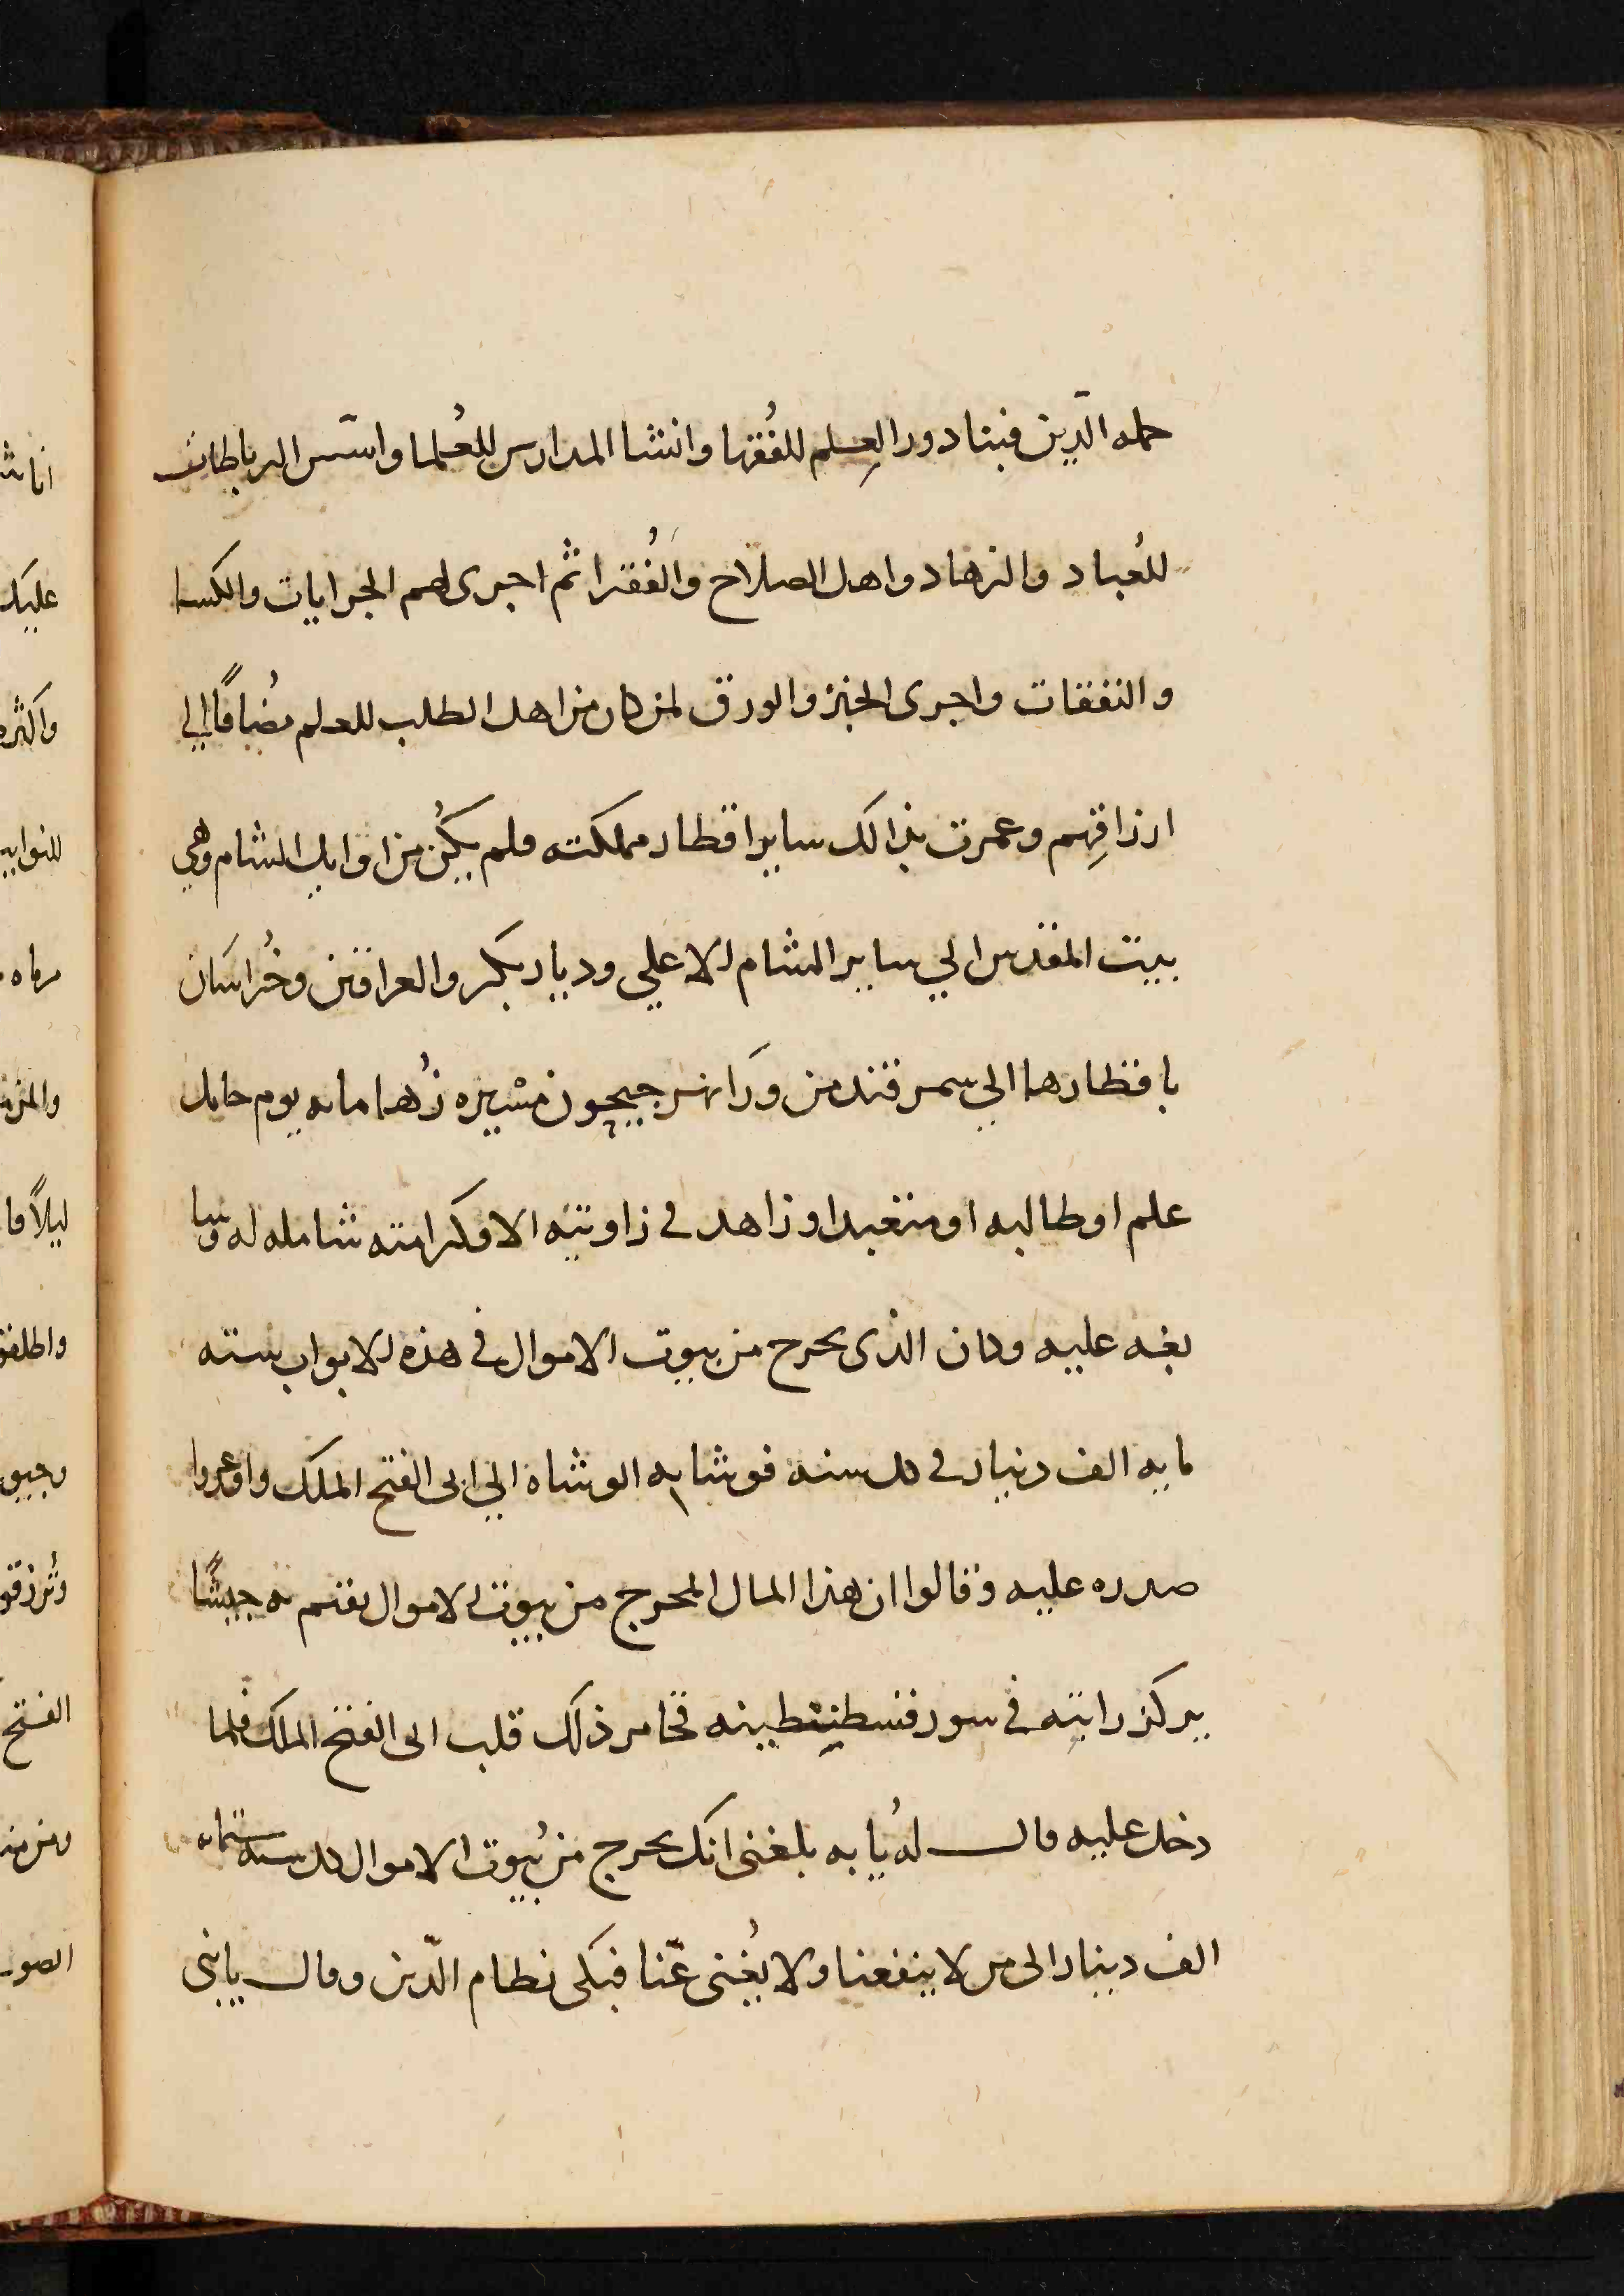 حمله الدّين فبنا دور العِلم للفُقها وانشا المدارس للعُلما واسّس الرباطات
للعُباد والزهاد واهل الصلاح والفُقرا ثم اجرى لهم الجرايات والكسا
والنفقات واجرى الخبز والورق لمن كان من اهل الطلب للعلم مضُافًا الي
ارزاقِهم وعمرت بذالك ساير اقطار مملكته فلم يكُن من اوايل الشام وهي
بيت المقدس الي ساير الشام الاعلي وديار بكر والعراقين وخُراسَان
باقطارها الي سمرقند من ورَا نهر جيحون مسْيره زُهَا مايه يوم حامل
علم او طالبه او متعبد او زاهد في زاويته الا وكرامته شامله له وسا
بغه عليه وكان الذى يخرج من بيوت الاموال في هذه الابواب سته
مايه الف دينار في كل سنه فوشا به الوشاة الي ابى الفتح الملك واوغروا
صدره عليه وقالوا ان هذا المال المخرج من بيوت الاموال يقيم به جيشًا
يركز رايته في سور قسطنطينه فخامر ذلك قلب ابى الفتح الملك فلما
دخل عليه قال لهُ يا به بلغنى انك تخرج من بُيوت الاموال كل سنه ستمايه
الف دينار الى من لا ينفعنا ولا يُغنى عّنا فبكى نظام الدّين وقال يا بنى